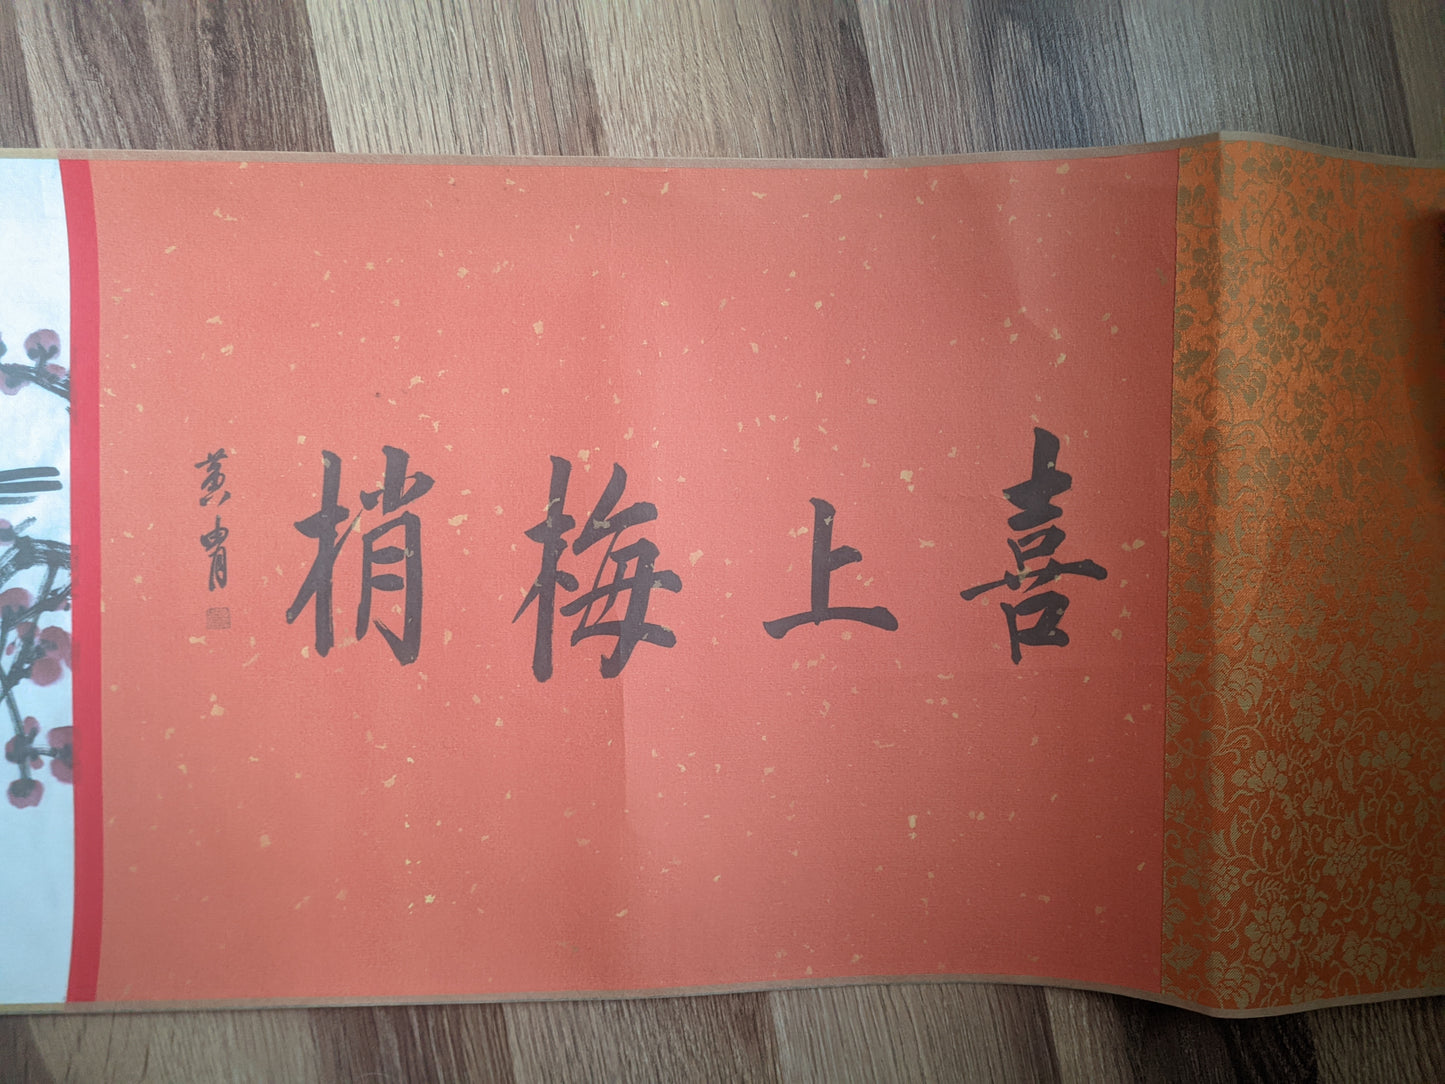 喜上梅梢
黄胄